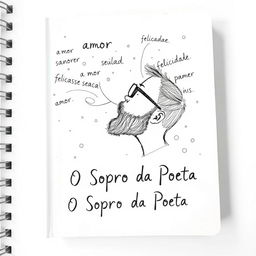 amor
felicadae.
amor
sanorer
seulad
a mor
felicidade
felicasse seaca
pamer
ius.
amor.
O Sopro da Poeta
O Sopro da Poeta